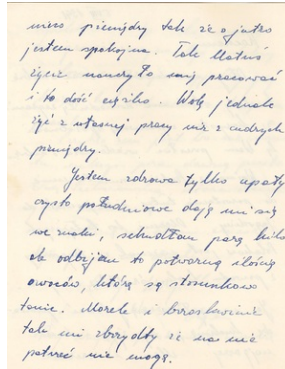 nieco pieniędzy tak że o jutro
jestem spokojna. Tak Matuś
życie nauczyło mię pracować
i to dość ciężko. Wolę jednak
żyć z własnej pracy niż z cudzych
pieniędzy.
Jestem zdrowa tylko upały
czysto południowe dają mi się
we znaki, schudłam parę kilo
ale odbijam to potworną ilością
owoców, które są stosunkowo
tanie. Morele i brzoskwinie
tak mi zbrzydły że na nie
patrzeć nie mogę.